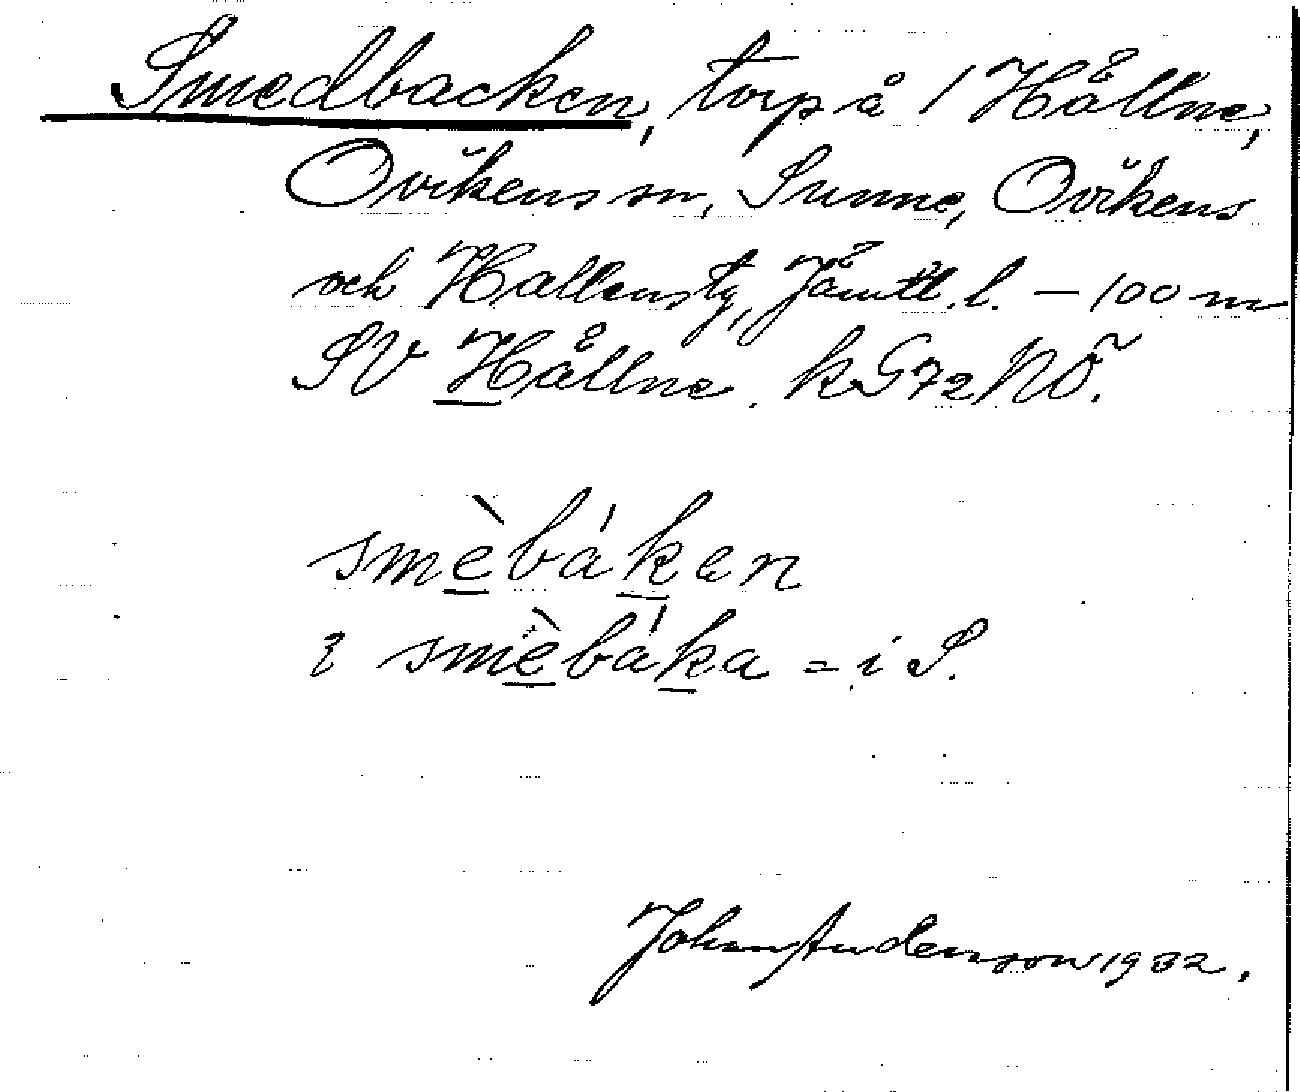 Smedbacken, torp å 1 Hållne,
Ovikens sn, Sunne, Ovikens
och Hallens tg, Jämtl. l. – 100 m
SV Hållne. kG72NÖ.
smèbáken
i smèbáka = i S.
Johan Anderson 1932.